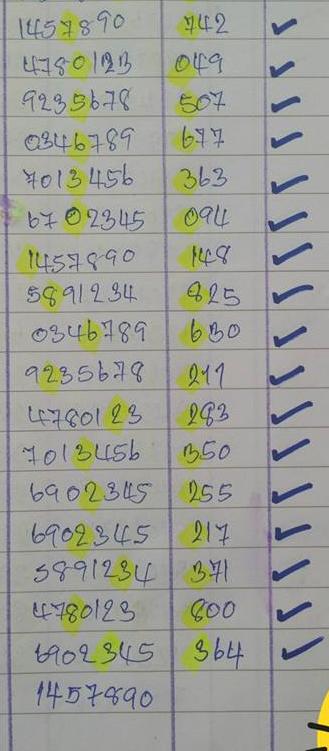 1457890 742
4780123 049
9235678 507
0346789 677
7013456 363
6702345 094
1457890 148
5891234 825
0346789 630
9235678 211
4780123 283
7013456 350
6902345 255
6902345 217
5891234 371
4780123 800
6902345 364
1457890